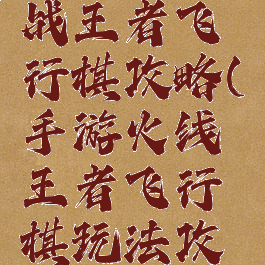 战王者飞
行棋攻略(
手游火线
王者飞行
棋玩法攻